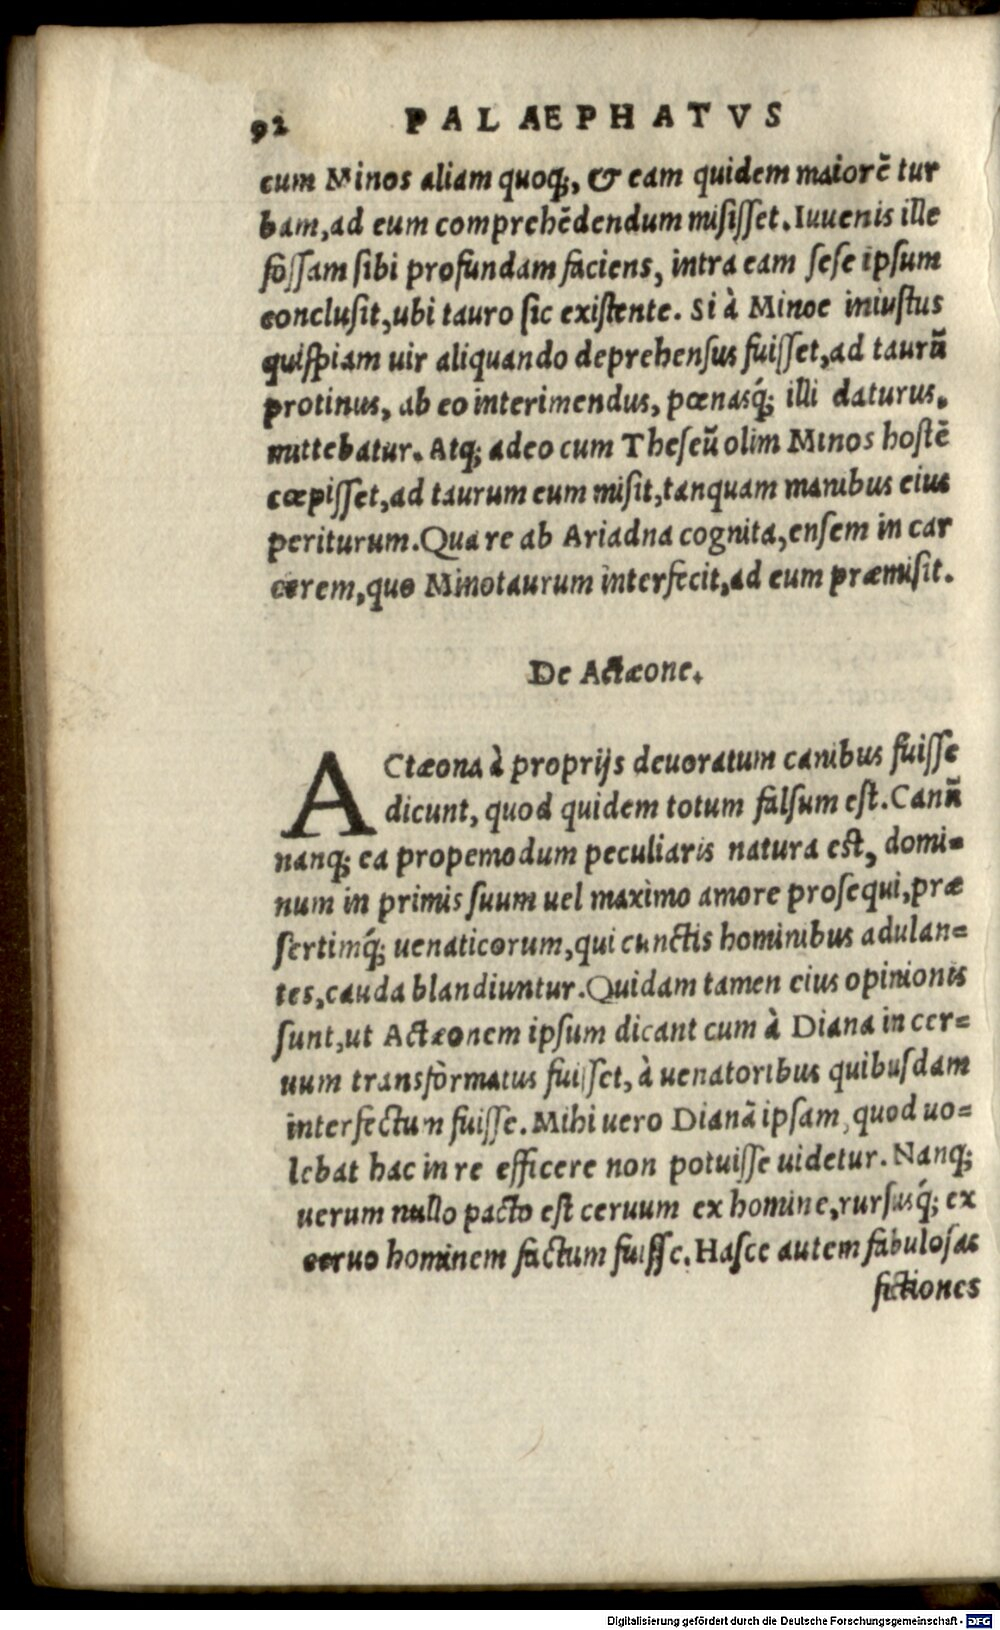 92 PALÆPHATVS
cum Minos aliam quoq;, & eam quidem maiorē tur
bam, ad eum comprehēdendum misisset. Iuuenis ille
fossam sibi profundam faciens, intra eam sese ipsum
conclusit, ubi tauro sic existente. Si à Minoe iniustus
quispiam uir aliquando deprehensus fuisset, ad taurū
protinus, ab eo interimendus, pœnasq́; illi daturus,
mittebatur. Atq; adeo cum Theseū olim Minos hostē
cœpisset, ad taurum eum misit, tanquam manibus eius
periturum. Quare ab Ariadna cognita, ensem in car
cerem, quo Minotaurum interfecit, ad eum præmisit.
De Actæone.
ACtæona à proprijs deuoratum canibus fuisse
dicunt, quod quidem totum falsum est. Canū
nanq; ea propemodum peculiaris natura est, domi=
num in primis suum uel maximo amore prosequi, præ
sertimq́; uenaticorum, qui cunctis hominibus adulan=
tes, cauda blandiuntur. Quidam tamen eius opinionis
sunt, ut Actæonem ipsum dicant cum à Diana in cer=
uum transformatus fuisset, à uenatoribus quibusdam
interfectum fuisse. Mihi uero Dianā ipsam, quod uo=
lebat hac in re efficere non potuisse uidetur. Nanq;
uerum nullo pacto est ceruum ex homine, rursusq́; ex
ceruo hominem factum fuisse. Hasce autem fabulosas
fictiones
Digitalisierung gefördert durch die Deutsche Forschungsgemeinschaft - DFG